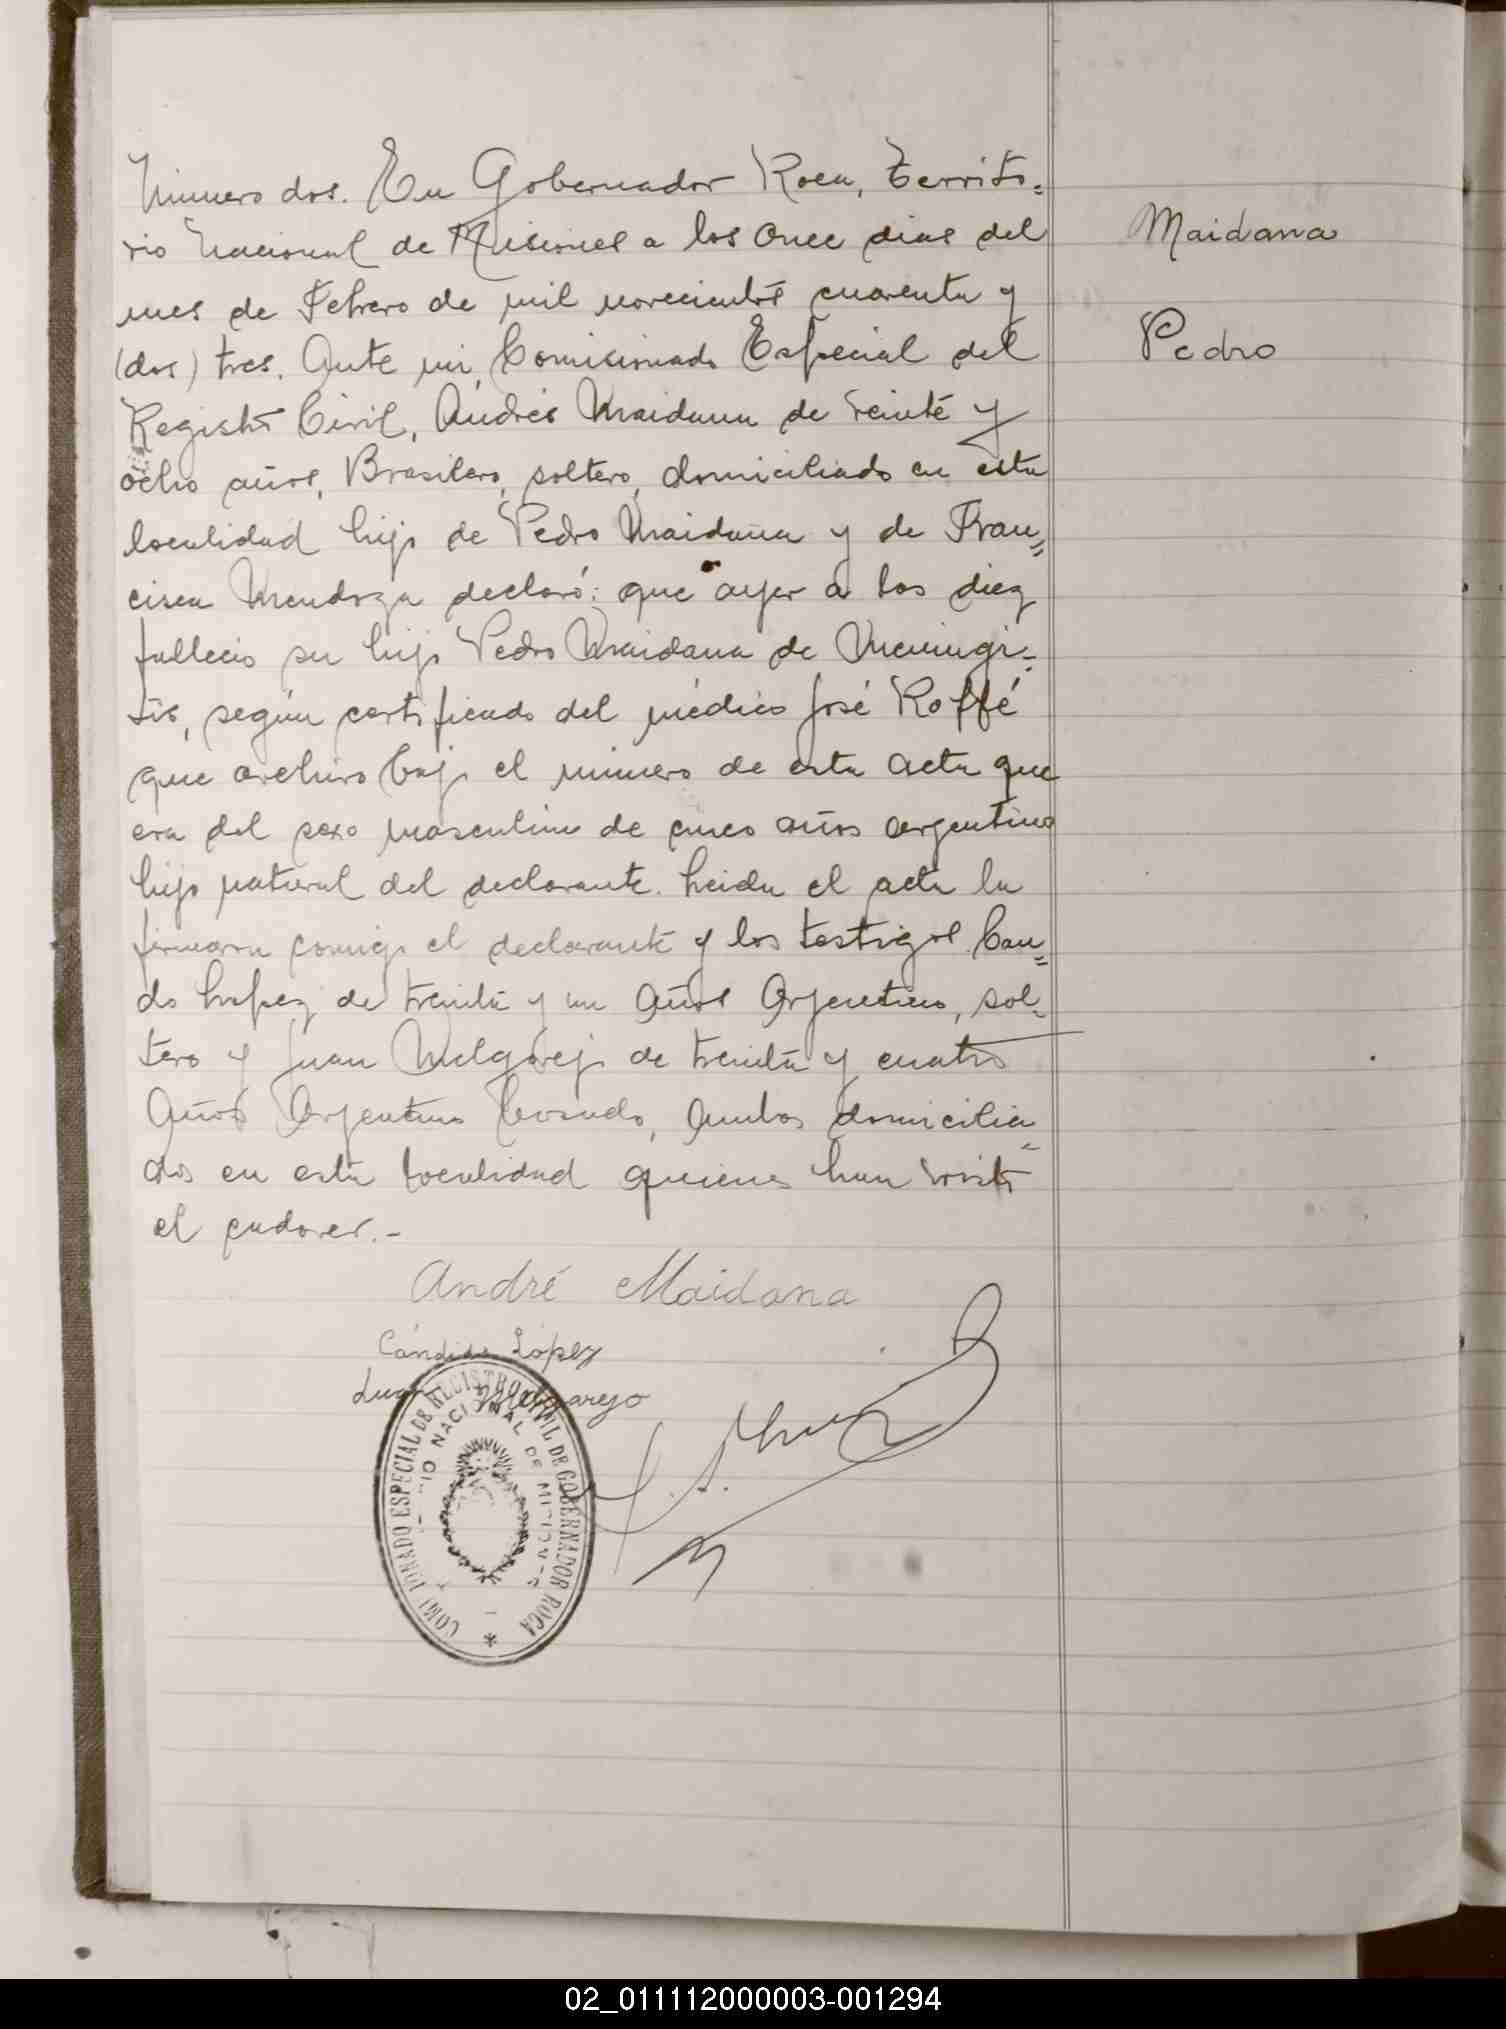 Número dos. En Gobernador Roca, Territo=
rio Nacional de Misiones a los once dias del
mes de Febrero de mil novecientos cuarenta y
(dos) tres. Ante mi, Comisionado Especial del
Registro Civil, Andrés Maidana de veinte y
ocho años, Brasilero, soltero, domiciliado en esta
localidad hijo de Pedro Maidana y de Fran=
cisca Mendoza declaró: que ayer a las diez
fallecio su hijo Pedro Maidana de Meningi=
tis, según certificado del médico José Roffé
que archivo bajo el número de esta acta que
era del sexo masculino de cinco años argentino
hijo natural del declarante. Leida el acta la
firmaron conmigo el declarante y los testigos Can=
do Lopez de treinta y un Años Argentino, sol=
tero y Juan Melgarejo de treinta y cuatro
Años Argentino Casado, Ambos domicilia=
dos en esta localidad quienes han visto
el cadaver.-
André Maidana
Cándido López
Juan Melgarejo
COMISIONADO ESPECIAL DE REGISTRO CIVIL DE GOBERNADOR ROCA
NACIONAL DE MISIONES
Maidana
Pedro
02_011112000003-001294